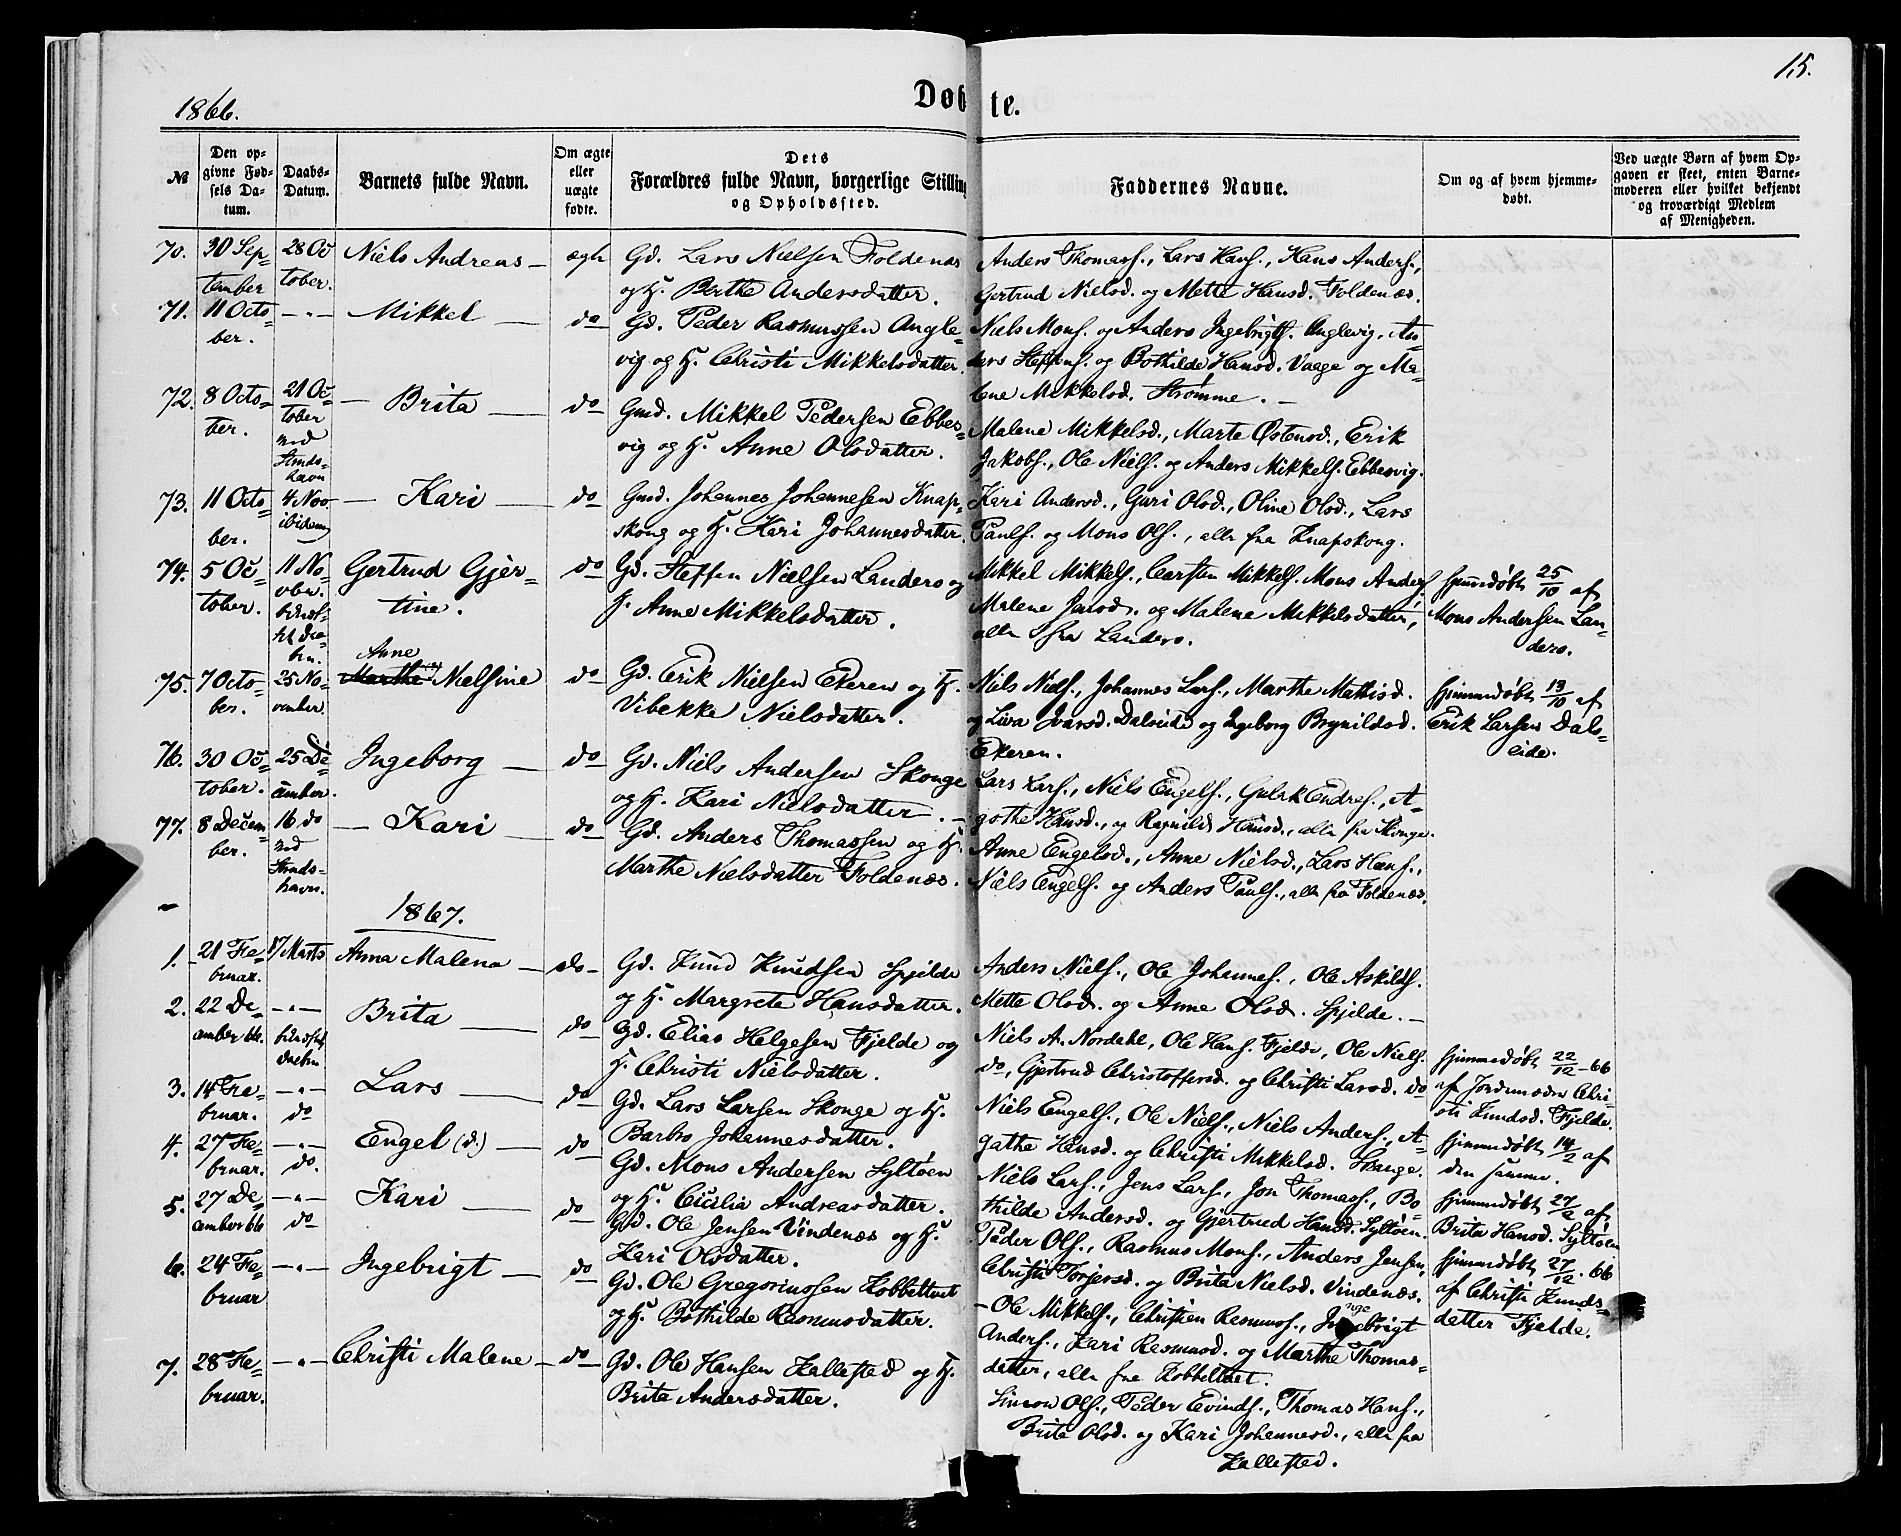 15.
1866.
Døbte.
№
Den opgivne Fødsels Datum.
Daabs-Datum.
Barnets fulde Navn.
Om ægte eller uægte fødte.
Dets Forældres fulde Navn, borgerlige Stilling og Opholdssted.
Faddernes Navne.
Om og af hvem hjemmedøbt.
Ved uægte Børn af hvem Opgaven er skeet, enten Barnemoderen eller hvilket bekjendt og troværdigt Medlem af Menigheden.
70. 30 September 28 October. Niels Andreas — ægte
Gd. Lars Nielsen Foldenæs
og H. Berthe Andersdatter.
Anders Thomass., Lars Hans., Hans Anders.,
Gertrud Nielsd. og Mette Hansd. Foldenæs.
71. 11 October. —"— Mikkel — do
Gd. Peder Rasmussen Anglevig og H. Christi Mikkelsdatter.
Niels Mons. og Anders Ingebrigts. Anglevig, Anders Steffens. og Bothilde Hansd. Vaage og Malene Mikkelsd. Strømme. —
72. 8 October. 21 October ved Strudshavn — Brita — do
Gmd. Mikkel Pedersen Ebbesvig og H. Anne Olsdatter.
Malene Mikkelsd., Marte Østensd., Erik
Jakobs., Ole Niels. og Anders Mikkels. Ebbesvig.
73. 11 October. 4 Nov. ibidem — Kari — do
Gmd. Johannes Johannesen Knapskong og H. Kari Johannesdatter.
Kari Andersd., Guri Olsd., Oline Olsd., Lars
Pauls. og Mons Ols., alle fra Knapskong.
74. 5 October. 11 Novbr. Gertrud Gjertine. do
Gd. Steffen Nielsen Landero og
H. Anne Mikkelsdatter.
Mikkel Mikkels., Carsten Mikkels. Mons Anders.
Malene Jensd. og Malene Mikkelsdatter,
alle fra Landero.
Hjemmedøbt 25/10 af
Mons Andersen Landero.
75. 7 October. 25 November. Anne Marthe Nielsine do
Gd. Erik Nielsen Ekeren og H.
Vibekke Nielsdatter.
Niels Niels., Johannes Lars., Marthe Mathisd.
og Liva Ivarsd. Dalseide og Ingeborg Brynildsd.
Ekeren.
Hjemmedøbt 13/10 af
Erik Larsen Dalseide.
76. 30 October. 25 December. Ingeborg — do
Gd. Niels Andersen Skonge
og H. Kari Nielsdatter. —
Lars Lars., Niels Engels., Gulak Endres., Agothe Hansd., og Ragnild Hansd., alle fra Skonge.
77. 8 December. 16 do ved Strudshavn. — Kari — do
Gd. Anders Thomassen og H.
Marthe Nielsdatter Foldenæs.
Anne Engelsd., Anne Nielsd., Lars Hans.,
Niels Engels. og Anders Pauls., alle fra Foldenæs.
1867.
1. 21 Februar. 17 Marts Anna Malena — do
Gd. Knud Knudsen Spjelde
og H. Margrete Hansdatter.
Anders Niels., Ole Johannes., Ole Askilds.
Mette Olsd. og Anne Olsd. Spjelde. —
2. 22 December 66. —"— Brita — do
Gd. Elias Helgesen Fjelde og
H. Christi Nielsdatter.
Niels A. Nordahl, Ole Hans. Fjelde, Ole Niels.
do, Gjertrud Christoffersd. og Christi Larsd. do
Hjemmedøbt 22/12 - 66
af Jordemoder Christi Knudsd. Fjelde.
3. 14 Februar. —"— do Lars — do
Gd. Lars Larsen Skonge og H.
Barbro Johannesdatter.
Niels Engels., Ole Niels., Niels Anders., Agathe Hansd. og Christi Mikkelsd. Skonge.
Hjemmedøbt 14/2 af
den samme.
4. 27 Februar. —"— do. Engel (d.) — do
Gd. Mons Andersen Syltøen
og H. Cicilia Andreasdatter.
Niels Lars., Jens Lars., Jon Thomass., Bothilde Andersd. og Gjertrued Hansd. Syltøen.
Hjemmedøbt 27/2 af
Brita Hansd. Syltøen
5. 27 December 66 —"— do Kari — do
Gd. Ole Jensen Vindenæs og H.
Kari Olsdatter.
Peder Ols., Rasmus Mons., Anders Jensen,
Christi Torjersd. og Brita Nielsd. Vindenæs.
Hjemmedøbt 27/12. 66
af Christi Knudsdatter Fjelde.
6. 24 Februar —"— Ingebrigt — do
Gd. Ole Gregoriussen Kobbeltvet
og H. Bothilde Rasmusdatter.
— Ole Mikkels., Christien Rasmuss., Ingebrigt
Anders., Kari Rasmusd. og Marthe Thomasdatter, alle fra Kobbeltvet.
7. 28 Februar. —"— Christi Malene — do
Gd. Ole Hansen Kallested og H.
Brita Andersdatter.
Simon Ols., Peder Eivinds., Thomas Hans.,
Brita Olsd. og Kari Johannesd., alle fra
Kallested.